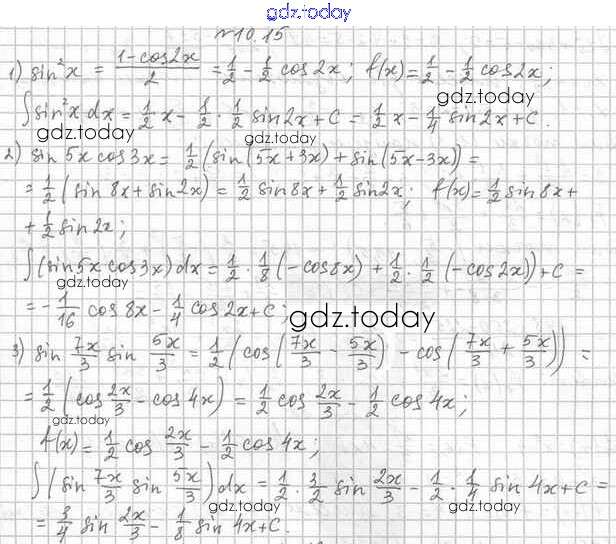 gdz.today
№10.15
1) sin²x = (1-cos2x)/2 = 1/2 - 1/2 cos2x; f(x) = 1/2 - 1/2 cos2x;
∫sin²x dx = 1/2 x - 1/2 · 1/2 sin2x + C = 1/2 x - 1/4 sin2x + C.
gdz.today gdz.today
2) sin 5x cos3x = 1/2 (sin(5x+3x) + sin(5x-3x)) =
= 1/2 (sin 8x + sin2x) = 1/2 sin8x + 1/2 sin2x; f(x) = 1/2 sin8x +
+ 1/2 sin2x;
∫(sin5x cos3x)dx = 1/2 · 1/8 (-cos8x) + 1/2 · 1/2 (-cos2x)) + C =
= -1/16 cos 8x - 1/4 cos 2x + C;
gdz.today
3) sin 7x/3 sin 5x/3 = 1/2 (cos(7x/3 - 5x/3) - cos(7x/3 + 5x/3)) =
= 1/2 (cos 2x/3 - cos 4x) = 1/2 cos 2x/3 - 1/2 cos 4x;
gdz.today
f(x) = 1/2 cos 2x/3 - 1/2 cos 4x;
∫(sin 7x/3 sin 5x/3)dx = 1/2 · 3/2 sin 2x/3 - 1/2 · 1/4 sin 4x + C =
gdz.today gdz.today
= 3/4 sin 2x/3 - 1/8 sin 4x + C.